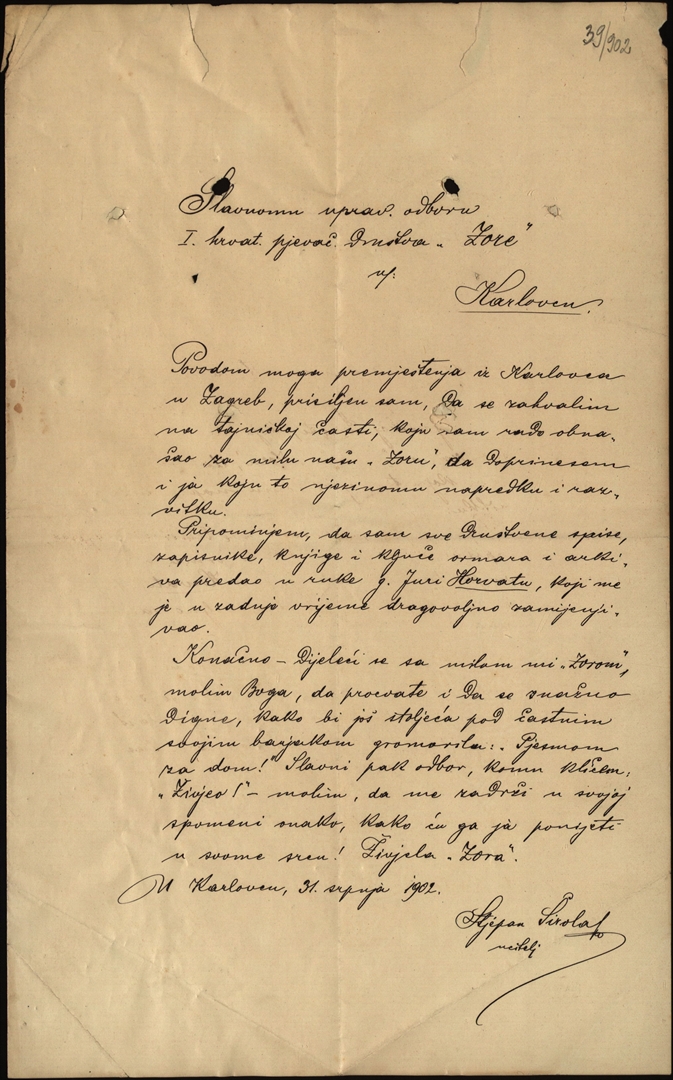 39/902
Slavnomu uprav. odboru
I. hrvat. pjevač. Društva „Zore"
u:
Karlovcu.
Povodom moga premještenja iz Karlovca
u Zagreb, prisiljen sam, da se zahvalim
na tajničkoj časti, koju sam rado obna-
šao za milu našu „Zoru", da doprinesem
i ja koju to njezinomu napredku i raz-
vitku.
Pripominjem, da sam sve društvene spise,
zapisnike, knjige i ključe ormara i arki-
va predao u ruke g. Juri Horvatu, koji me
je u zadnje vrijeme dragovoljno zamijenji-
vao.
Konačno – dijeleći se sa milom mi „Zorom",
molim Boga, da procvate i da se znatno
digne, kako bi još stoljeća pod častnim
svojim barjakom gromorila: „Pjesmom
za dom!" Slavni pak odbor, komu kličem:
„Živjeo!" – molim, da me zadrži u svojoj
spomeni onako, kako ću ga ja ponijeti
u svome srcu! Živjela „Zora".
U Karlovcu, 31. srpnja 1902.
Stjepan Širola
učitelj